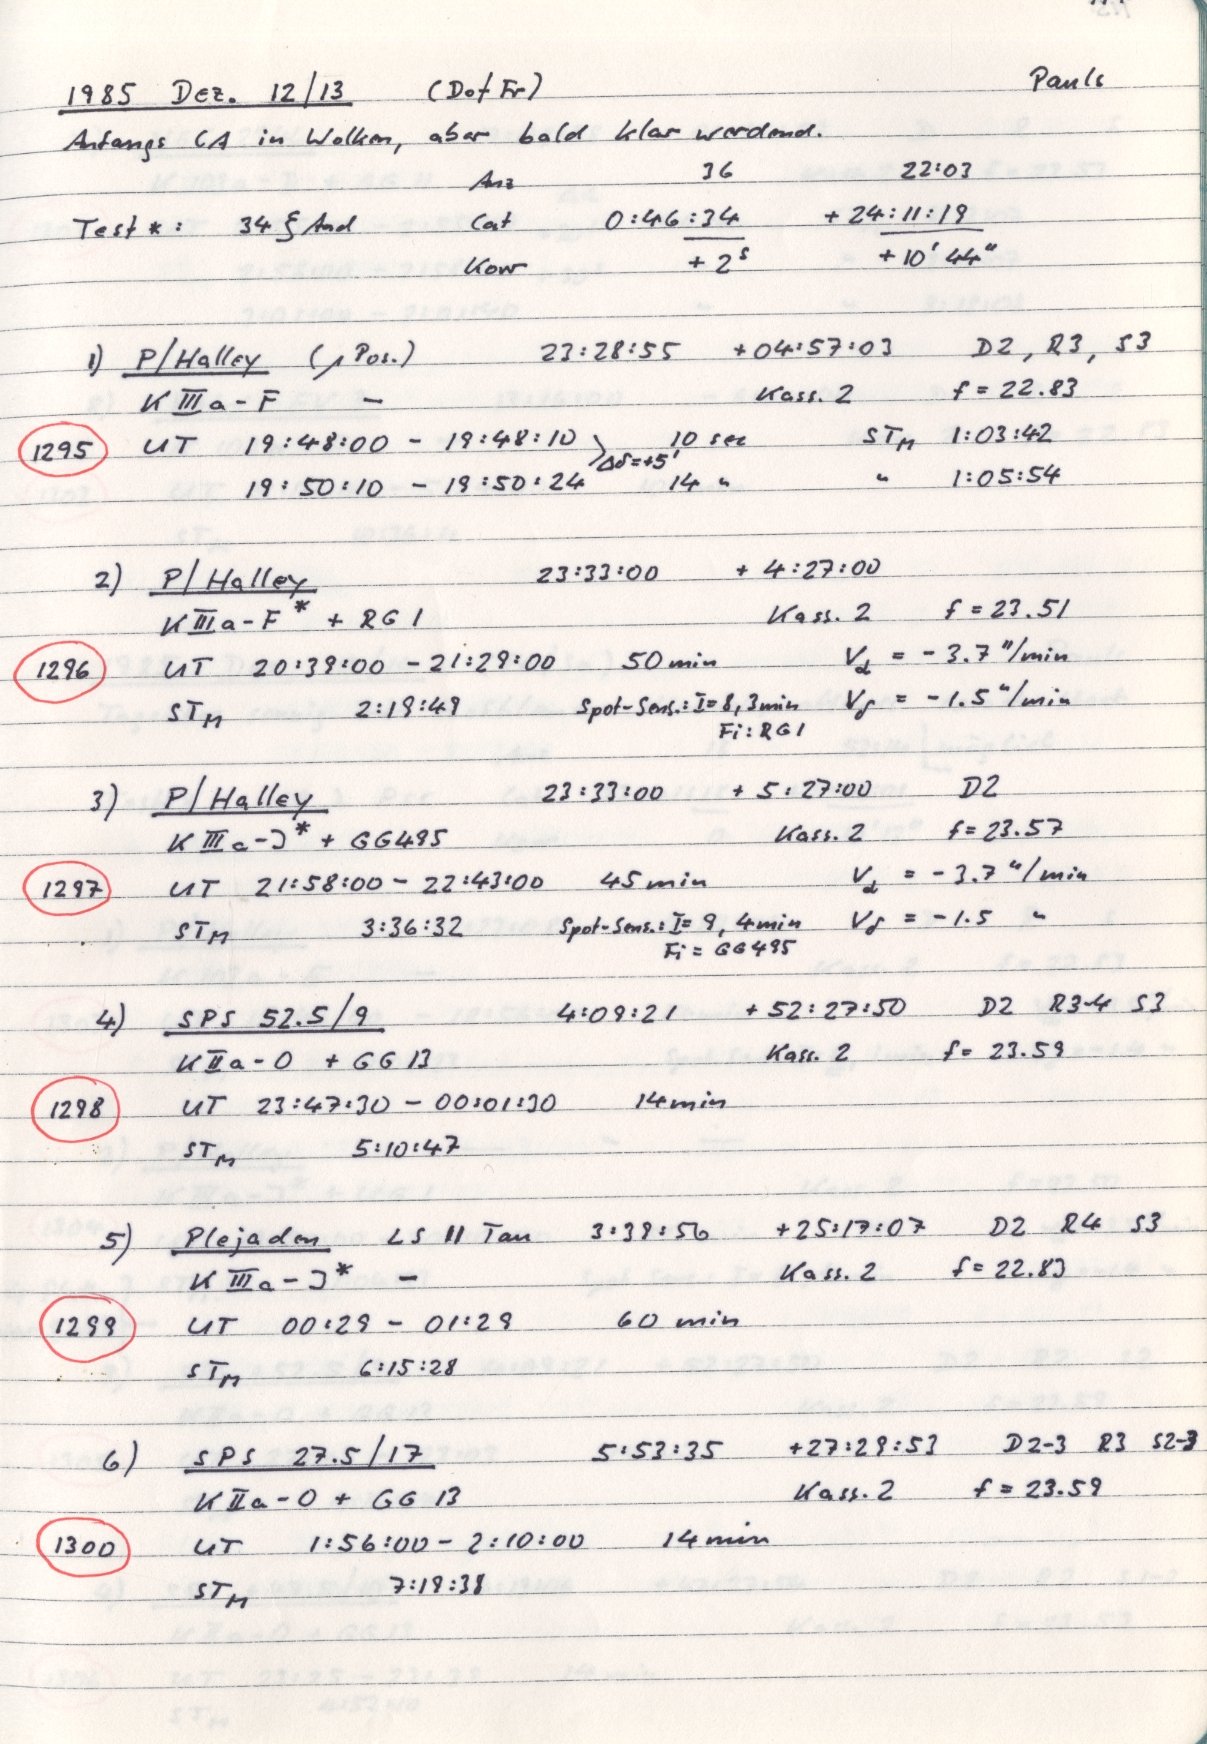 1985 Dez. 12/13 (Do/Fr) Pauls
Anfangs CA in Wolken, aber bald klar werdend.
Anz 36 22:03
Test *: 34 ζ And Cat 0:46:34 + 24:11:19
Korr + 2ˢ + 10' 44"
1) P/Halley (↗ Pos.) 23:28:55 +04:57:03 D2, R3, S3
K III a - F — Kass. 2 f = 22.83
1295 UT 19:48:00 - 19:48:10 10 sec STM 1:03:42
Δδ=+5'
19:50:10 - 19:50:24 14 " " 1:05:54
2) P/Halley 23:33:00 + 4:27:00
K III a - F * + RG 1 Kass. 2 f = 23.51
1296 UT 20:39:00 - 21:29:00 50 min Vα = - 3.7 "/min
STM 2:19:49 Spot-Sens.: I=8, 3min Vδ = - 1.5 "/min
Fi: RG1
3) P/Halley 23:33:00 + 5:27:00 D2
K III a - J * + GG495 Kass. 2 f = 23.57
1297 UT 21:58:00 - 22:43:00 45 min Vα = - 3.7 "/min
STM 3:36:32 Spot-Sens.: I= 9, 4min Vδ = - 1.5 "
Fi = GG495
4) SPS 52.5/9 4:09:21 + 52:27:50 D2 R3-4 S3
K II a - O + GG 13 Kass. 2 f = 23.59
1298 UT 23:47:30 - 00:01:30 14 min
STM 5:10:47
5) Plejaden LS II Tau 3:39:56 +25:17:07 D2 R4 S3
K III a - J * — Kass. 2 f = 22.83
1299 UT 00:29 - 01:29 60 min
STM 6:15:28
6) SPS 27.5/17 5:53:35 +27:29:53 D2-3 R3 S2-3
K II a - O + GG 13 Kass. 2 f = 23.59
1300 UT 1:56:00 - 2:10:00 14 min
STM 7:19:38